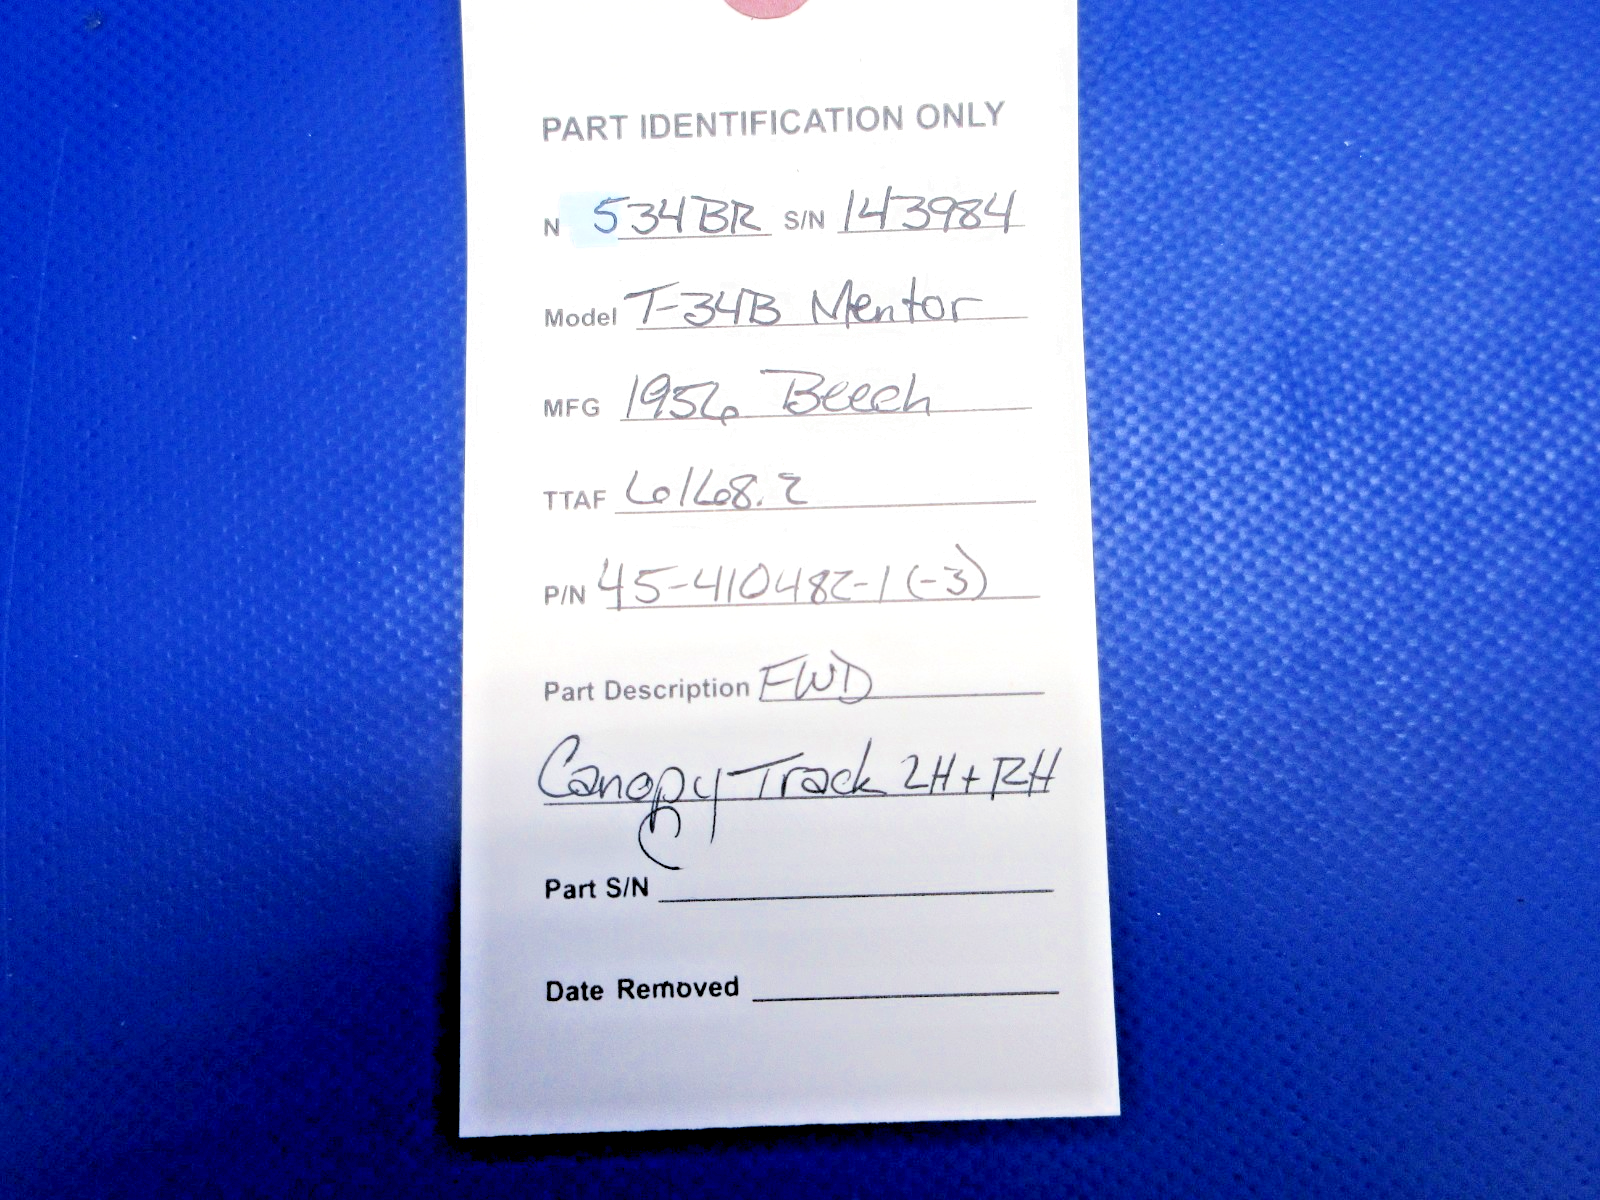 PART IDENTIFICATION ONLY
N 534BR S/N 143984
Model T-34B Mentor
MFG 1956 Beech
TTAF 6168.2
P/N 45-410482-1 (-3)
Part Description FWD
Canopy Track LH + RH
Part S/N
Date Removed